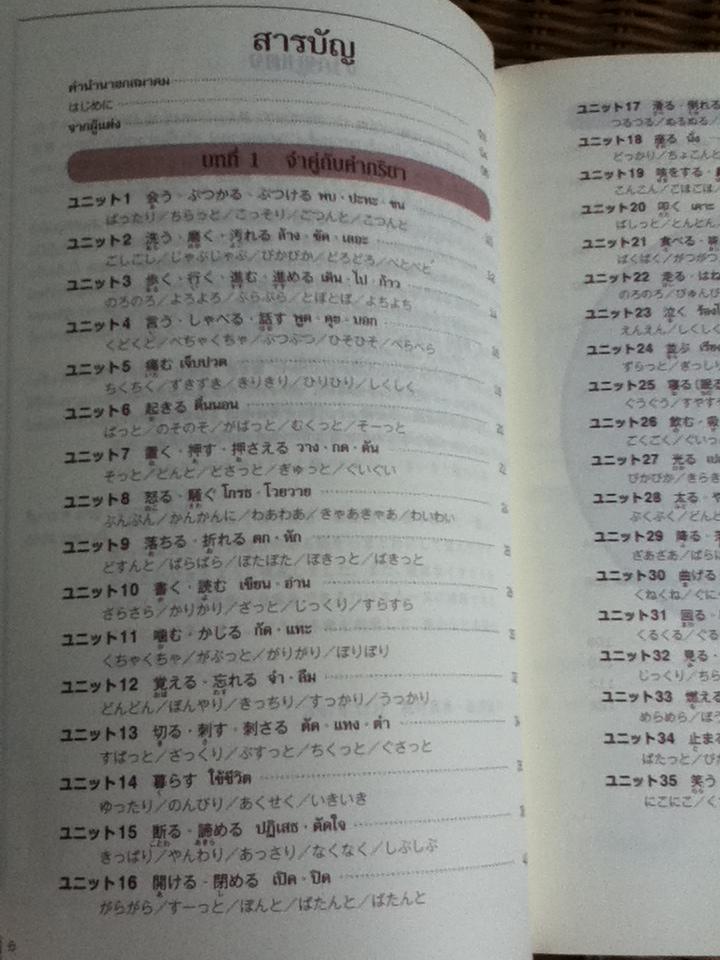 สารบัญ
คำนำนายกสมาคม
はじめに
จากผู้แต่ง
บทที่ 1 จำคู่กับคำกริยา
ユニット1 会う・ぶつかる・ぶつける พบ・ปะทะ・ชน
ばったり/ちらっと/こっそり/ごつんと/こつんと
ユニット2 洗う・磨く・汚れる ล้าง・ขัด・เลอะ
ごしごし/じゃぶじゃぶ/ぴかぴか/どろどろ/べとべと
ユニット3 歩く・行く・進む・進める เดิน・ไป・ก้าว
のろのろ/よろよろ/ぶらぶら/とぼとぼ/よちよち
ユニット4 言う・しゃべる・話す พูด・คุย・บอก
くどくど/ぺちゃくちゃ/ぶつぶつ/ひそひそ/ぺらぺら
ユニット5 痛む เจ็บปวด
ちくちく/ずきずき/きりきり/ひりひり/しくしく
ユニット6 起きる ตื่นนอน
ぱっと/のそのそ/がばっと/むくっと/そーっと
ユニット7 置く・押す・押さえる วาง・กด・ดัน
そっと/どんと/どさっと/ぎゅっと/ぐいぐい
ユニット8 怒る・騒ぐ โกรธ・โวยวาย
ぷんぷん/かんかんに/わあわあ/きゃあきゃあ/わいわい
ユニット9 落ちる・折れる ตก・หัก
どすんと/ばらばら/ぽたぽた/ぽきっと/ばきっと
ユニット10 書く・読む เขียน・อ่าน
さらさら/かりかり/ざっと/じっくり/すらすら
ユニット11 噛む・かじる กัด・แทะ
くちゃくちゃ/がぶっと/がりがり/ぽりぽり
ユニット12 覚える・忘れる จำ・ลืม
どんどん/ぼんやり/きっちり/すっかり/うっかり
ユニット13 切る・刺す・刺さる ตัด・แทง・ตำ
すぱっと/ざっくり/ぶすっと/ちくっと/ぐさっと
ユニット14 暮らす ใช้ชีวิต
ゆったり/のんびり/あくせく/いきいき
ユニット15 断る・諦める ปฏิเสธ・ตัดใจ
きっぱり/やんわり/あっさり/なくなく/しぶしぶ
ユニット16 開ける・閉める เปิด・ปิด
がらがら/すーっと/ぽんと/ぱたんと/ばたんと
6
ユニット17 滑る・倒れる
つるつる/ぬるぬる/
ユニット18 座る นั่ง
どっかり/ちょこんと
ユニット19 咳をする・
こんこん/ごほごほ/
ユニット20 叩く เคาะ
ぱしっと/とんとん/
ユニット21 食べる・
ぱくぱく/がつがつ
ユニット22 走る・はね
のろのろ/びゅん
ユニット23 泣く ร้องไ
えんえん/しくしく
ユニット24 並ぶ เรียง
ずらっと/ぎっしり
ユニット25 寝る(眠る
ぐうぐう/すやすや
ユニット26 飲む・吸
ごくごく/ぐいっ
ユニット27 光る
ぴかぴか/きらき
ユニット28 太る
ぶくぶく/どんと
ユニット29 降る・
ざあざあ/ぱらぱ
ユニット30 曲げる
くねくね/ぐに
ユニット31 回る・
くるくる/ぐる
ユニット32 見る・
じっくり/ちら
ユニット33 燃える
めらめら/ぼう
ユニット34 止まる
ぴたっと/ぴ
ユニット35 笑う
にこにこ/く